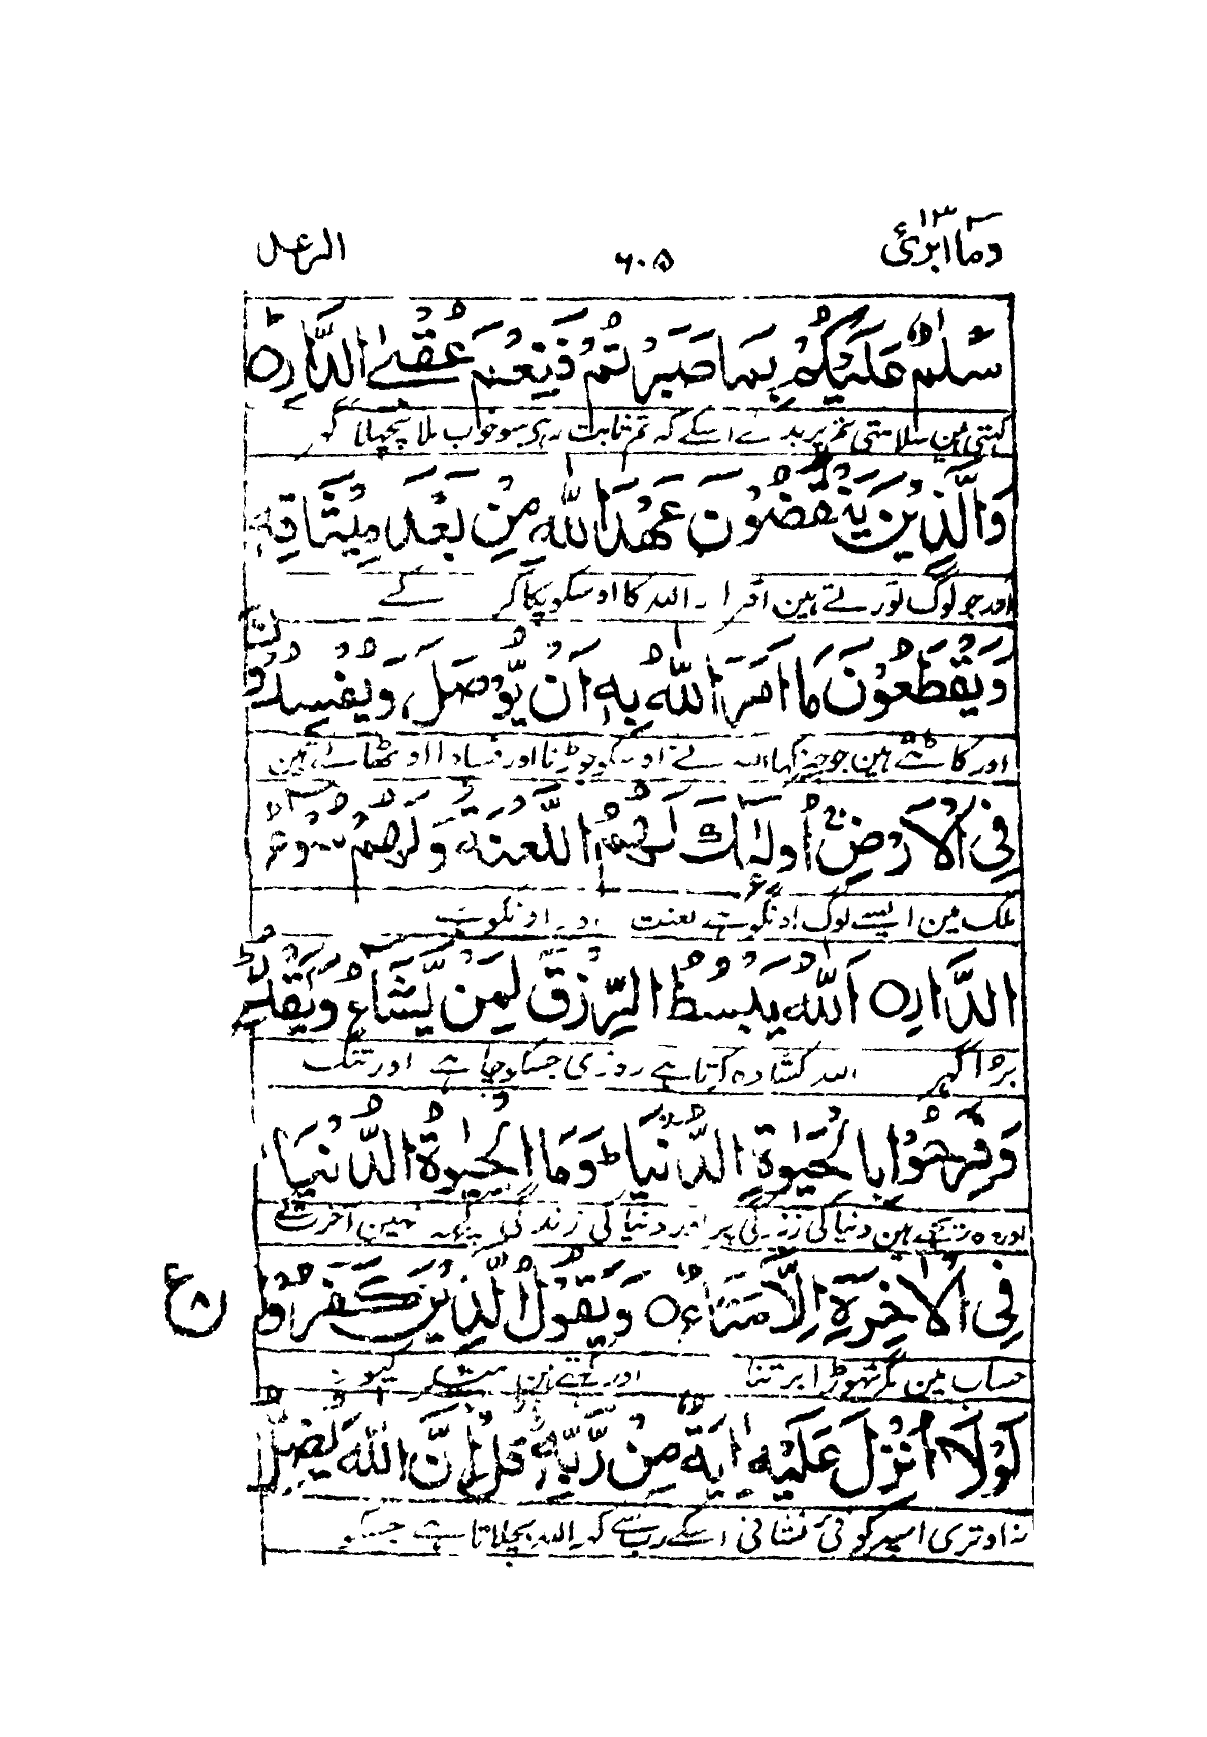 وما ابرئ ١٣
٦٠٥
الرعد
سَلٰمٌ عَلَيْكُمْ بِمَا صَبَرْتُمْ فَنِعْمَ عُقْبَى الدَّارِ ۝ ط
کہتی ہین سلامتی تم پر بدلے اسکے کہ تم ثابت رہی سو خوب ملا پچھلا گہر
وَالَّذِيْنَ يَنْقُضُوْنَ عَهْدَ اللّٰهِ مِنْ بَعْدِ مِيْثَاقِهٖ
اور جو لوگ توڑتے ہین اقرار اللہ کا اوسکو پکا کر کے
وَيَقْطَعُوْنَ مَا اَمَرَ اللّٰهُ بِهٖ اَنْ يُّوْصَلَ وَيُفْسِدُوْنَ
اور کاٹتے ہین جو چیز کہا اللہ نے اوسکو جوڑنا اور فساد اوٹھاتے ہین
فِى الْاَرْضِ اُولٰٓئِكَ لَهُمُ اللَّعْنَةُ وَلَهُمْ سُوْٓءُ
ملک مین ایسے لوگ اونکو ہے لعنت اور اونکو ہے
الدَّارِ ۝ اَللّٰهُ يَبْسُطُ الرِّزْقَ لِمَنْ يَّشَآءُ وَيَقْدِرُ ط
برا گہر اللہ کشادہ کرتا ہے روزی جسکو چاہے اور تنگ
وَفَرِحُوْا بِالْحَيٰوةِ الدُّنْيَا ط وَمَا الْحَيٰوةُ الدُّنْيَا
اور وہ ریجھے ہین دنیا کی زندگی پر اور دنیا کی زندگی کچہہ نہین آخرت کے
فِى الْاٰخِرَةِ اِلَّا مَتَاعٌ ۝ وَيَقُوْلُ الَّذِيْنَ كَفَرُوْا
ع ٨
حساب مین مگر تھوڑا برتنا اور کہتے ہین منکر کیون
لَوْلَا اُنْزِلَ عَلَيْهِ اٰيَةٌ مِّنْ رَّبِّهٖ قُلْ اِنَّ اللّٰهَ يُضِلُّ
نہ اوتری اسپر کوئی نشانی اسکے رب سے کہہ اللہ بچلاتا ہے جسکو